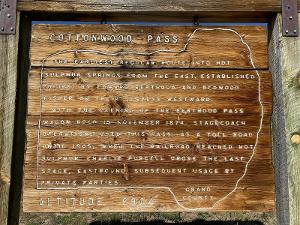 COTTONWOOD PASS
THE EARLIEST REGULAR ROUTE INTO HOT
SULPHUR SPRINGS FROM THE EAST, ESTABLISHED
BY EDWARD BERTHOUD AND REDWOOD
FISHER ON WESTWARD
WITH THE OPENING OF THE BERTHOUD PASS
WAGON ROAD IN NOVEMBER 1874, STAGECOACH
OPERATIONS THIS PASS AS A TOLL ROAD
UNTIL 1905, WHEN THE RAILROAD REACHED HOT
SULPHUR. CHARLIE PURCELL DROVE THE LAST
STAGE, EASTBOUND. SUBSEQUENT USAGE BY
PRIVATE PARTIES
GRAND
COUNTY
ALTITUDE 8904